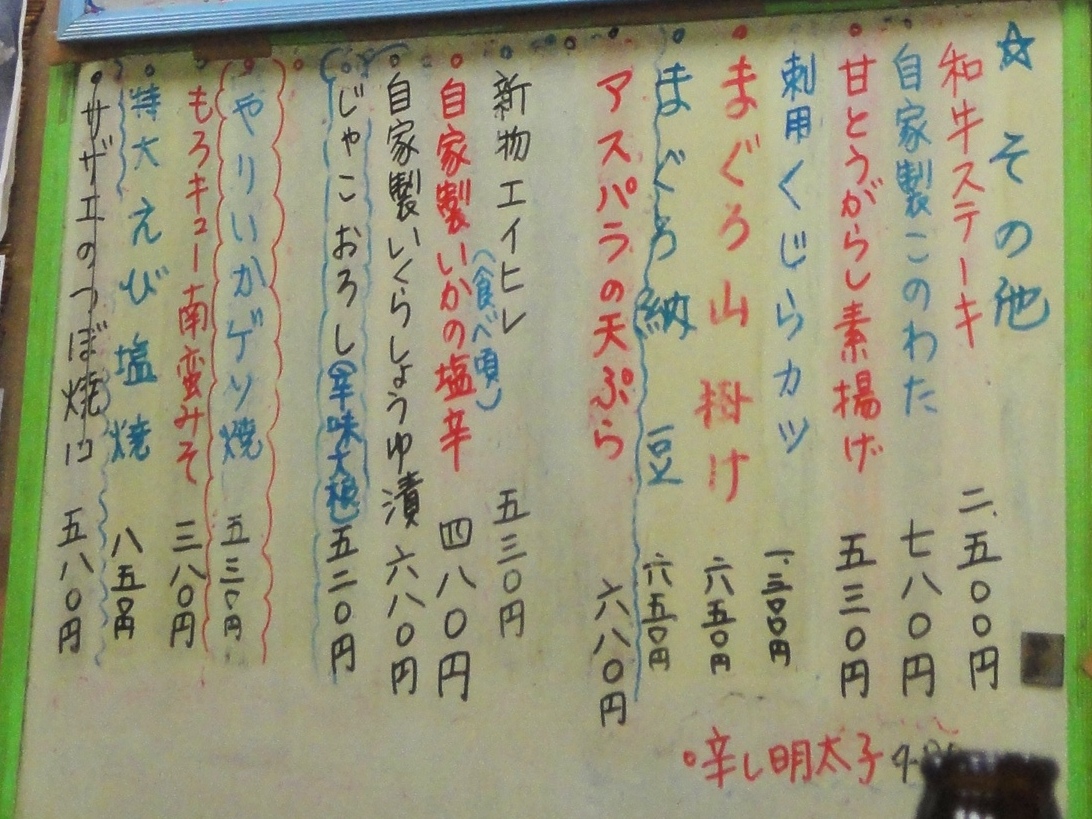 ☆その他
和牛ステーキ 二.五〇〇円
自家製このわた 七八〇円
甘とうがらし素揚げ 五三〇円
刺用くじらカツ 一.三〇〇円
まぐろ山掛け 六五〇円
まぐろ納豆 六五〇円
アスパラの天ぷら 六八〇円
新物エイヒレ 五三〇円
自家製いかの塩辛 四八〇円
(食べ頃)
自家製いくらしょうゆ漬 六八〇円
じゃこおろし(辛味大根) 五二〇円
やりいかゲソ焼 五三〇円
もろキュー南蛮みそ 三八〇円
特大えび塩焼 八五〇円
サザエのつぼ焼 五八〇円
辛し明太子